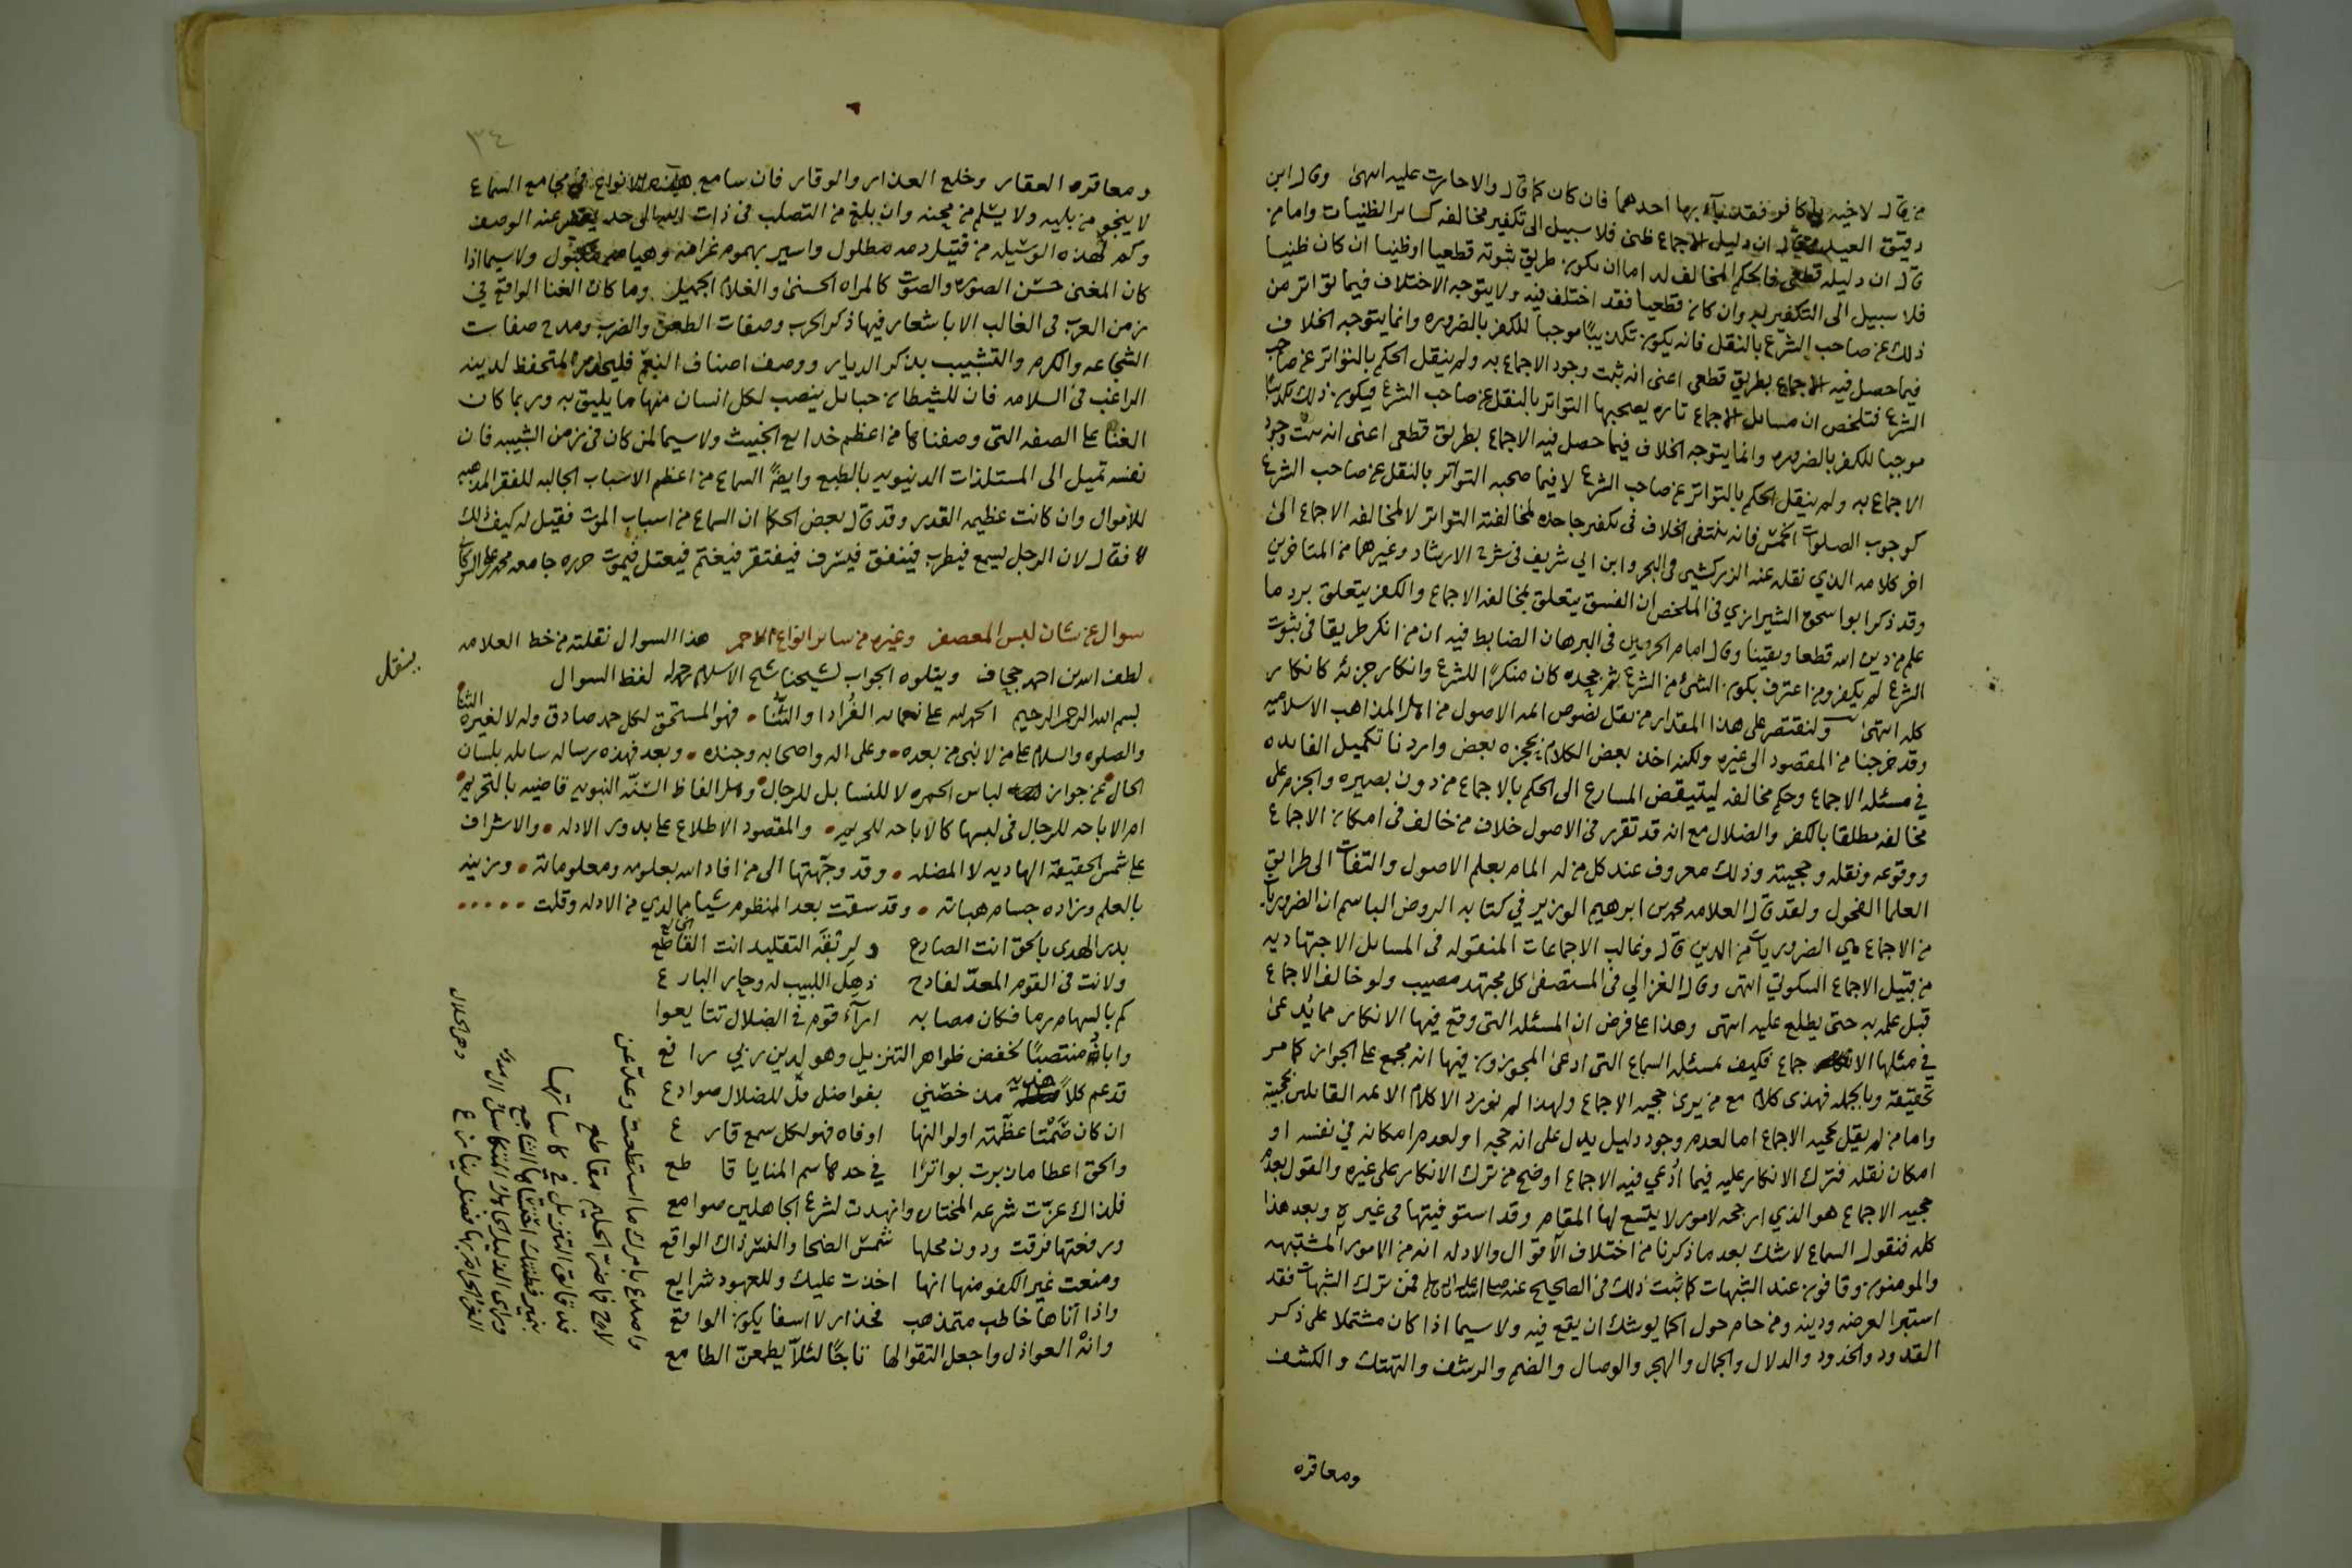 من قال لاخيه يا كافر فقد باء بها احدهما فان كان كما قال والا حارت عليه انتهى وقال ابن
دقيق العيد من قال ان دليل الاجماع ظني فلا سبيل الى تكفير مخالفه كسائر الظنيات واما من
قال ان دليله قطعي فالحكم المخالف له اما ان يكون طريق ثبوته قطعيا او ظنيا ان كان ظنيا
فلا سبيل الى التكفير به وان كان قطعيا فقد اختلف فيه ولا يتوجه الاختلاف فيما تواتر من
ذلك عن صاحب الشرع بالنقل فانه يكون تكذيبًا موجبا للكفر بالضروره وانما يتوجه الخلاف
فيما حصل فيه الاجماع بطريق قطعي اعنى انه ثبت وجود الاجماع به ولم ينقل الحكم بالتواتر عن صاحب
الشرع فتلخص ان مسائل الاجماع تاره يصحبها التواتر بالنقل عن صاحب الشرع فيكون ذلك تكذيبًا
موجبا للكفر بالضروره وانما يتوجه الخلاف فيما حصل فيه الاجماع بطريق قطعي اعنى انه ثبت وجود
الاجماع به ولم ينقل الحكم بالتواتر عن صاحب الشرع لا فيما صحبه التواتر بالنقل عن صاحب الشرع
كوجوب الصلوات الخمس فانه ينتفى الخلاف في تكفير جاحده لمخالفته التواتر لا لمخالفه الاجماع الى
اخر كلامه الذي نقله عنه الزركشي في البحر وابن ابي شريف في شرح الارشاد وغيرهما من المتاخرين
وقد ذكر ابو اسحق الشيرازي في الملخص ان الفسق يتعلق بمخالفه الاجماع والكفر يتعلق برد ما
علم من دين الله قطعا ويقينا وقال امام الحرمين في البرهان الضابط فيه ان من انكر طريقا في ثبوت
الشرع لم يكفر ومن اعترف بكون الشئ من الشرع ثم جحده كان منكرًا للشرع وانكار جزئه كانكار
كله انتهى ولنقتصر على هذا المقدار من نقل نصوص ائمه الاصول من اهل المذاهب الاسلاميه
وقد خرجنا من المقصود الى غيره ولكنه اخذ بعض الكلام بحجزه بعض واردنا تكميل الفائده
في مسئله الاجماع وحكم مخالفه ليتيقض المسارع الى الحكم بالاجماع من دون بصيره والجزم على
مخالفه مطلقا بالكفر والضلال مع انه قد تقرر في الاصول خلاف من خالف في امكان الاجماع
ووقوعه ونقله وحجيته وذلك معروف عند كل من له المام بعلم الاصول والتفات الى طرايق
العلما الفحول ولقد قال العلامه محمد بن ابرهيم الوزير في كتابه الروض الباسم ان الضروريات
من الاجماع هي الضروريات من الدين قال وغالب الاجماعات المنقوله في المسائل الاجتهاديه
من قبيل الاجماع السكوتي انتهى وقال الغزالي في المستصفى كل مجتهد مصيب ولو خالف الاجماع
قبل علمه به حتى يطلع عليه انتهى وهذا على فرض ان المسئله التي وقع فيها الانكار مما يُدعى
في مثلها الاجماع فكيف بمسئله السماع التي ادعى المجوزون فيها انه مجمع على الجواز كما مر
تحقيقه وبالجمله فهذى كلام مع من يرى حجيه الاجماع ولهذا لم نورد الا كلام الائمه القايلين بحجيته
واما من لم يقل بحجيه الاجماع اما لعدم وجود دليل يدل على انه حجه او لعدم امكانه في نفسه او
امكان نقله فترك الانكار عليه فيما اُدعي فيه الاجماع اوضح من ترك الانكار على غيره والقول بعدم
حجيه الاجماع هو الذي ارجحه لامور لا يتسع لها المقام وقد استوفيتها في غيره وبعد هذا
كله فنقول السماع لا شك بعد ما ذكرنا من اختلاف الاقوال والادله انه من الامور المشتبهه
والمومنون وقافون عند الشبهات كما ثبت ذلك في الصحيح عنه صلى الله عليه واله وسلم فمن ترك الشبهات فقد
استبرا لعرضه ودينه ومن حام حول الحما يوشك ان يقع فيه ولا سيما اذا كان مشتملا على ذكر
القدود والخدود والدلال والجمال والهجر والوصال والضم والرشف والتهتك والكشف
ومعاقره
٣٤
ومعاقره العقار وخلع العذار والوقار فان سامع هذه الانواع في مجامع السماع
لا ينجو من بليه ولا يسلم من محنه وان بلغ من التصلب في ذات الله الى حد يقصر عنه الوصف
وكم لهذه الوسيله من قتيل دمه مطلول واسير بهموم غرامه وهيامه مكبول ولا سيما اذا
كان المغنى حسن الصوره والصوت كالمراه الحسنى والغلام الجميل وما كان الغنا الواقع في
زمن العرب في الغالب الا باشعار فيها ذكر الحرب وصفات الطعن والضرب ومدح صفات
الشجاعه والكرم والتشبيب بذكر الديار ووصف اصناف النعم فليحذره المتحفظ لدينه
الراغب في السلامه فان للشيطان حبائل ينصب لكل انسان منها ما يليق به وربما كان
الغنا على الصفه التي وصفناها من اعظم خدايع الخبيث ولا سيما لمن كان في زمن الشبيبه فان
نفسه تميل الى المستلذات الدنيويه بالطبع وايضًا السماع من اعظم الاسباب الجالبه للفقر المذهبه
للاموال وان كانت عظيمه القدر وقد قال بعض الحكما ان السماع من اسباب الموت فقيل له كيف ذلك
فقال لان الرجل يسمع فيطرب فينفق فيسرف فيفتقر فيغتم فيعتل فيموت حرره جامعه محمد علي الشوكاني
سوال عن شان لبس المعصفر وغيره من سائر انواع الاحمر هذا السوال نقلته من خط العلامه
لطف الله بن احمد جحاف ويتلوه الجواب لشيخنا شيخ الاسلام لفظ السوال
بنقل
بسم الله الرحمن الرحيم الحمد لله على نعمائه الفُرادا والثُّنا فهو المستحق لكل حمد صادق وله لا لغيره الثنا
والصلوه والسلام على من لا نبي من بعده وعلى اله واصحابه وجنده وبعد فهذه رساله سايله بلسان
الحال عن جواز لباس الحمره لا للنسا بل للرجال وهل الفاظ السنّه النبويه قاضيه بالتحريم
ام الاباحه للرجال في لبسها كالاباحه للحريم والمقصود الاطلاع على بدور الادله والاشراف
على شمس الحقيقه الهاديه لا المضله وقد وجّهتها الى من افاد الله بعلومه ومعلوماته وزينه
بالعلم وزاده جسام هباته وقد سقت بعد المنظومه شيا مما لدي من الادله وقلت
بدر الهدى بالحق انت الصادع ولربقه التقليد انت القاطع
ولانت في القوم المعدّ لفادح ذهل اللبيب له وحار البارع
كم بالسهام رما فكان مصابه ارآء قوم في الضلال تتايعوا
واباه منتصبًا لخفض ظواهر التنزيل وهو لدين ربي رافع
قد عم كلاً هديه من خصّني بفواضل هن للضلال صوادع
ان كان ضَمْتا عظّمته اولو النها اوفاه فهو لكل سمع قارع
والحق اعطاه من برت بواترًا في حدها سم المنايا قاطع
فلذاك عزّت شرعه المختار وانهدت لشرع الجاهلين صوامع
ورفعتها فرقت ودون محلها شمس الضحا والنسر ذاك الواقع
ومنعت غير الكفو منها انها اخذت عليك وللعهود شرايع
واذا اتاها خاطب متمذهب فحذار لا اسفا يكون الواقع
وانه العواذل واجعل التقوا لها تاجًا لئلّا يطمعنّ الطامع
واصدع بامرك ما استطعت وعدّ عن